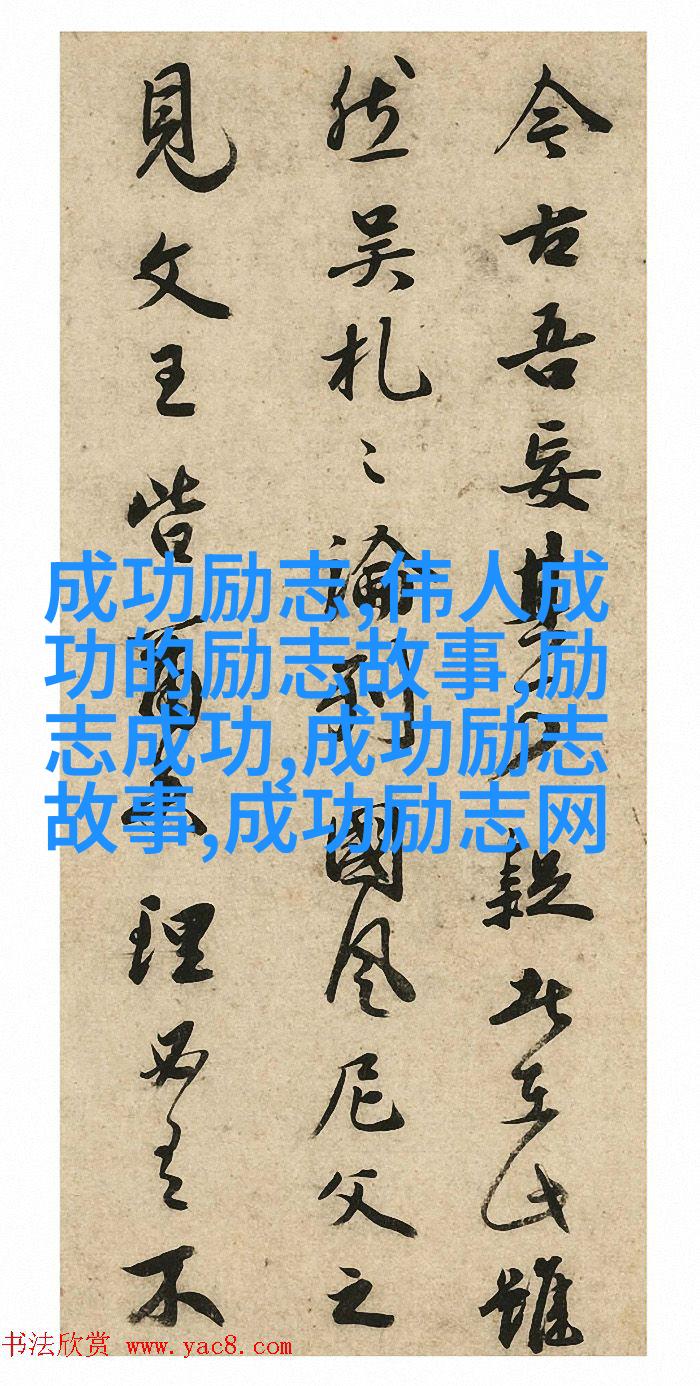 今古吾妄此雖
然吴札〻論列國風尼父之
見文王皆理必有不
成功励志,伟人成
功的励志故事,励
志成功,成功励志
故事,成功励志网
书法欣赏 www.yac8.com